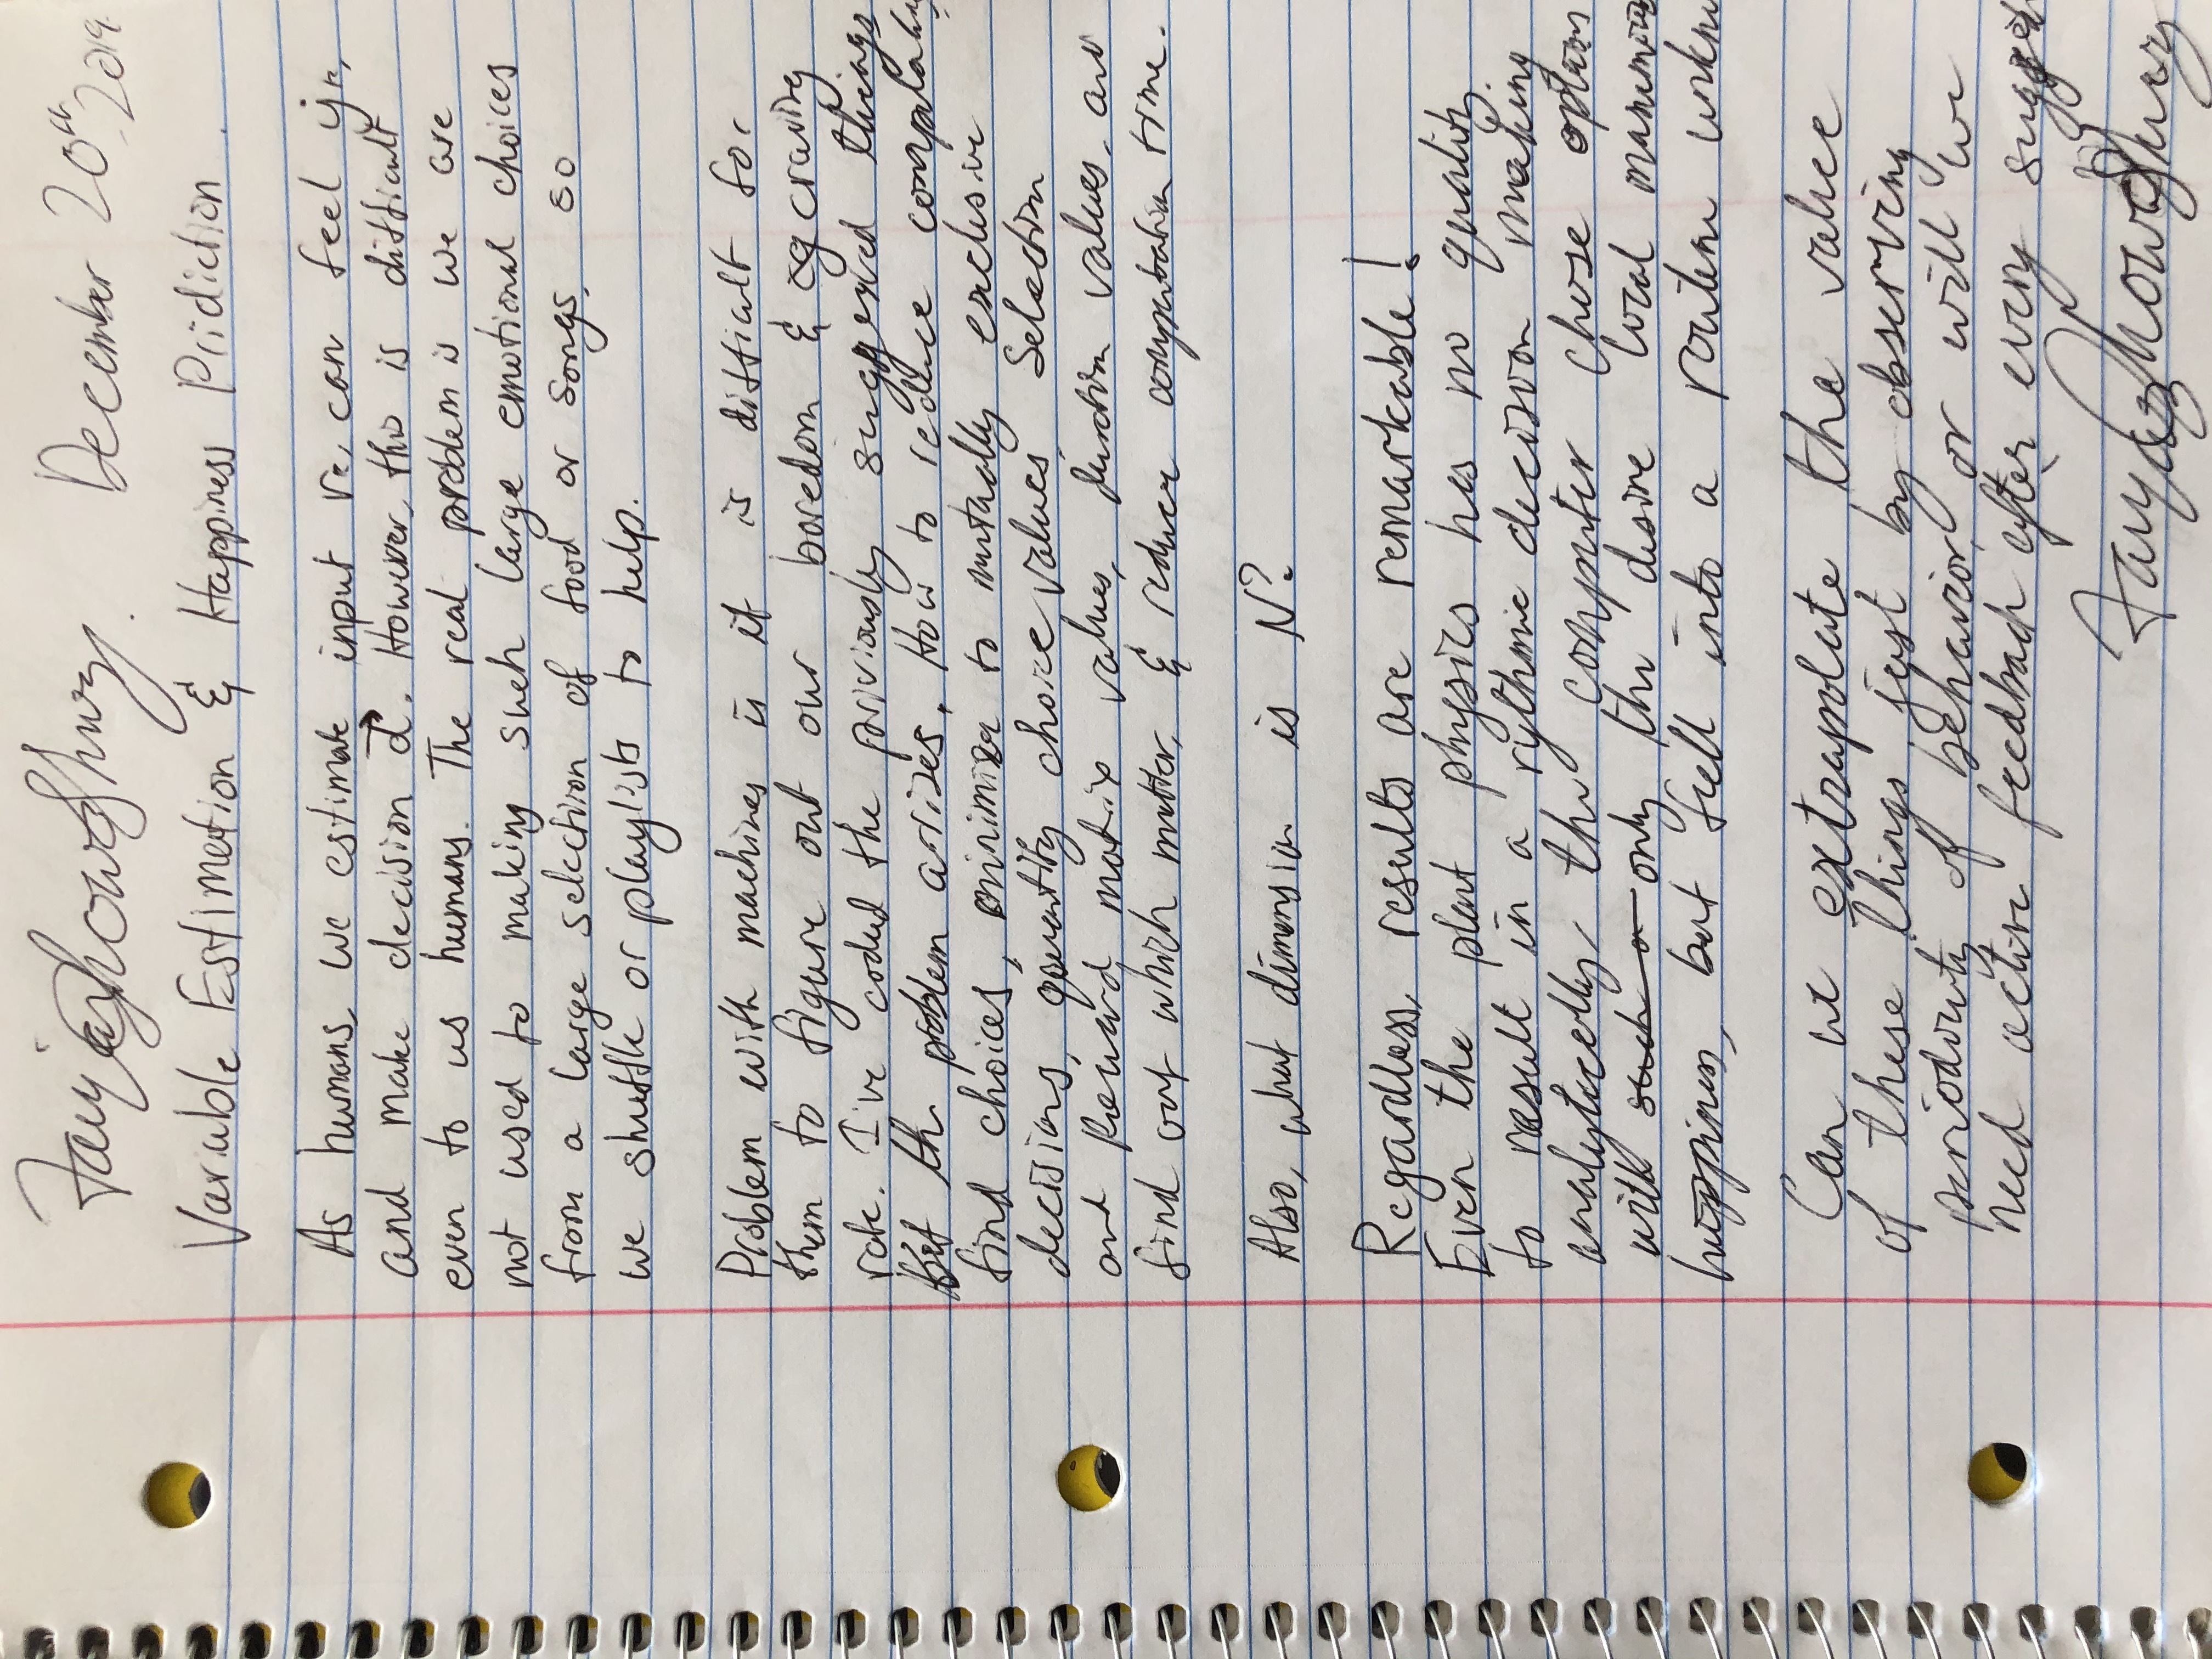 December 20th 2019
Variable Estimation & Happiness Pridiction.
As humans, we estimate input re, can feel yr,
and make decision d. However, this is difficult
even to us humans. The real problem is we are
not used to making such large emotional choices
from a large selection of food or songs, so
we shuffle or playlists to help.
Problem with machines is it is difficult for
them to figure out our boredom & craving
rate. I've coded the priviously suggested things
But the problem arrises. How to reduce
find choices, minimize to mutually exclusive
decisions, quantify choice values, Selection
and Reward matrix values, duration values, and
find out which matter, & reduce computation time.
Also, what dimension is N?
Regardless, results are remarkable!
Even the plant physics has no quality
to result in a rythmic decision making
analytically, the computer chose options
with such a only the desire local
happiness, but fell into a routine
Can we extrapolate the value
of these things just by observing
periodicity of behavior, or will we
need active feedback after every